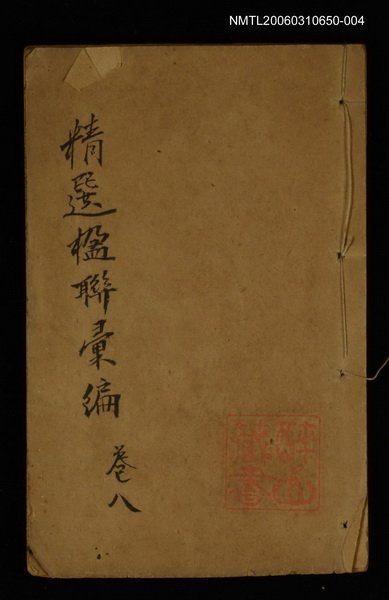 NMTL20060310650-004
精選楹聯彙編
卷八